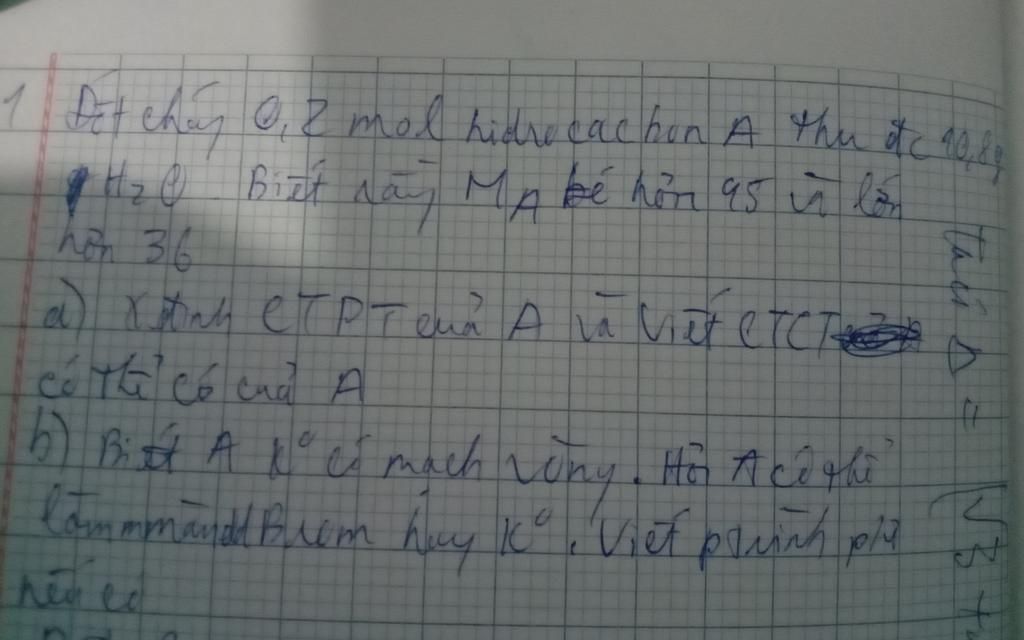 1 Đốt cháy 0,2 mol hidrocacbon A thu đc 10,8g
H2O Biết rằng MA bé hơn 45 và lớn
hơn 36
a) Xđịnh CTPT của A và Viết CTCT
có thể có của A
b) Biết A k° có mạch vòng. Hỏi A có thể
làm mmàu dd Brom hay k°. Viết ptrình pứ
nếu có